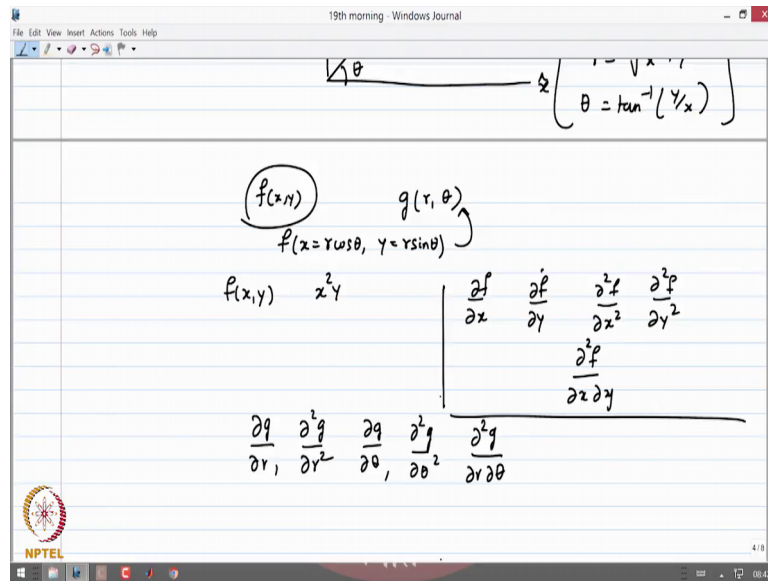 19th morning - Windows Journal
File Edit View Insert Actions Tools Help
θ
x̂
θ = tan⁻¹(y/x)
f(x,y)
g(r, θ)
f(x = r cosθ, y = r sinθ)
f(x,y) x²y
∂f/∂x ∂f/∂y ∂²f/∂x² ∂²f/∂y²
∂²f/∂x∂y
∂g/∂r, ∂²g/∂r² ∂g/∂θ, ∂²g/∂θ² ∂²g/∂r∂θ
NPTEL
4/8